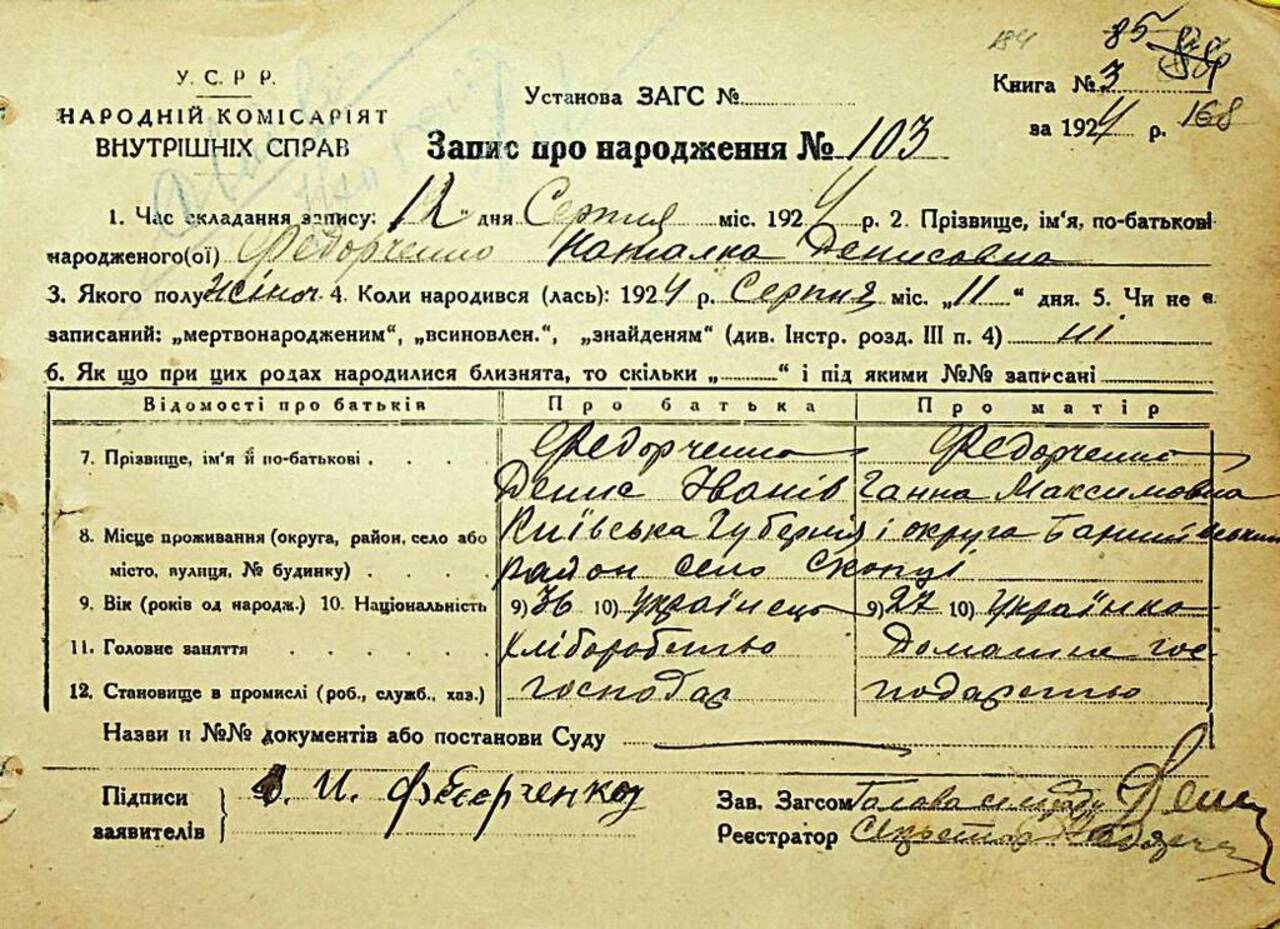 184 85
У. С. Р Р.
НАРОДНІЙ КОМІСАРІЯТ
ВНУТРІШНІХ СПРАВ
Установа ЗАГС №
Книга № 3
за 1924 р. 168
Запис про народження № 103
1. Час складання запису: "12" дня Серпня міс. 1924 р. 2. Прізвище, ім'я, по-батькові
народженого(ої) Федорченко Наталка Денисовна
3. Якого полу жіноч. 4. Коли народився (лась): 1924 р. Серпня міс. „11" дня. 5. Чи не є
записаний: „мертвонародженим", „всиновлен.", „знайденям" (див. Інстр. розд. III п. 4) ні
6. Як що при цих родах народилися близнята, то скільки „ " і під якими №№ записані
Відомості про батьків Про батька Про матір
7. Прізвище, ім'я й по-батькові . . . . Федорченко Федорченко
Денис Іванів Ганна Максимовна
8. Місце проживання (округа, район, село або Київська Губернія і округа
місто, вулиця, № будинку) . . . . район село Скопці
9. Вік (років од народж.) 10. Національність 9) 36 10) Українець 9) 27 10) Українка
11. Головне заняття . . . . . . Хліборобство Домашнє гос-
12. Становище в промислі (роб., служб., хаз.) господар подарство
Назви и №№ документів або постанови Суду
Підписи
заявителів
Д. И. Федорченко
Зав. Загсом Голова сільради
Реєстратор Секретар